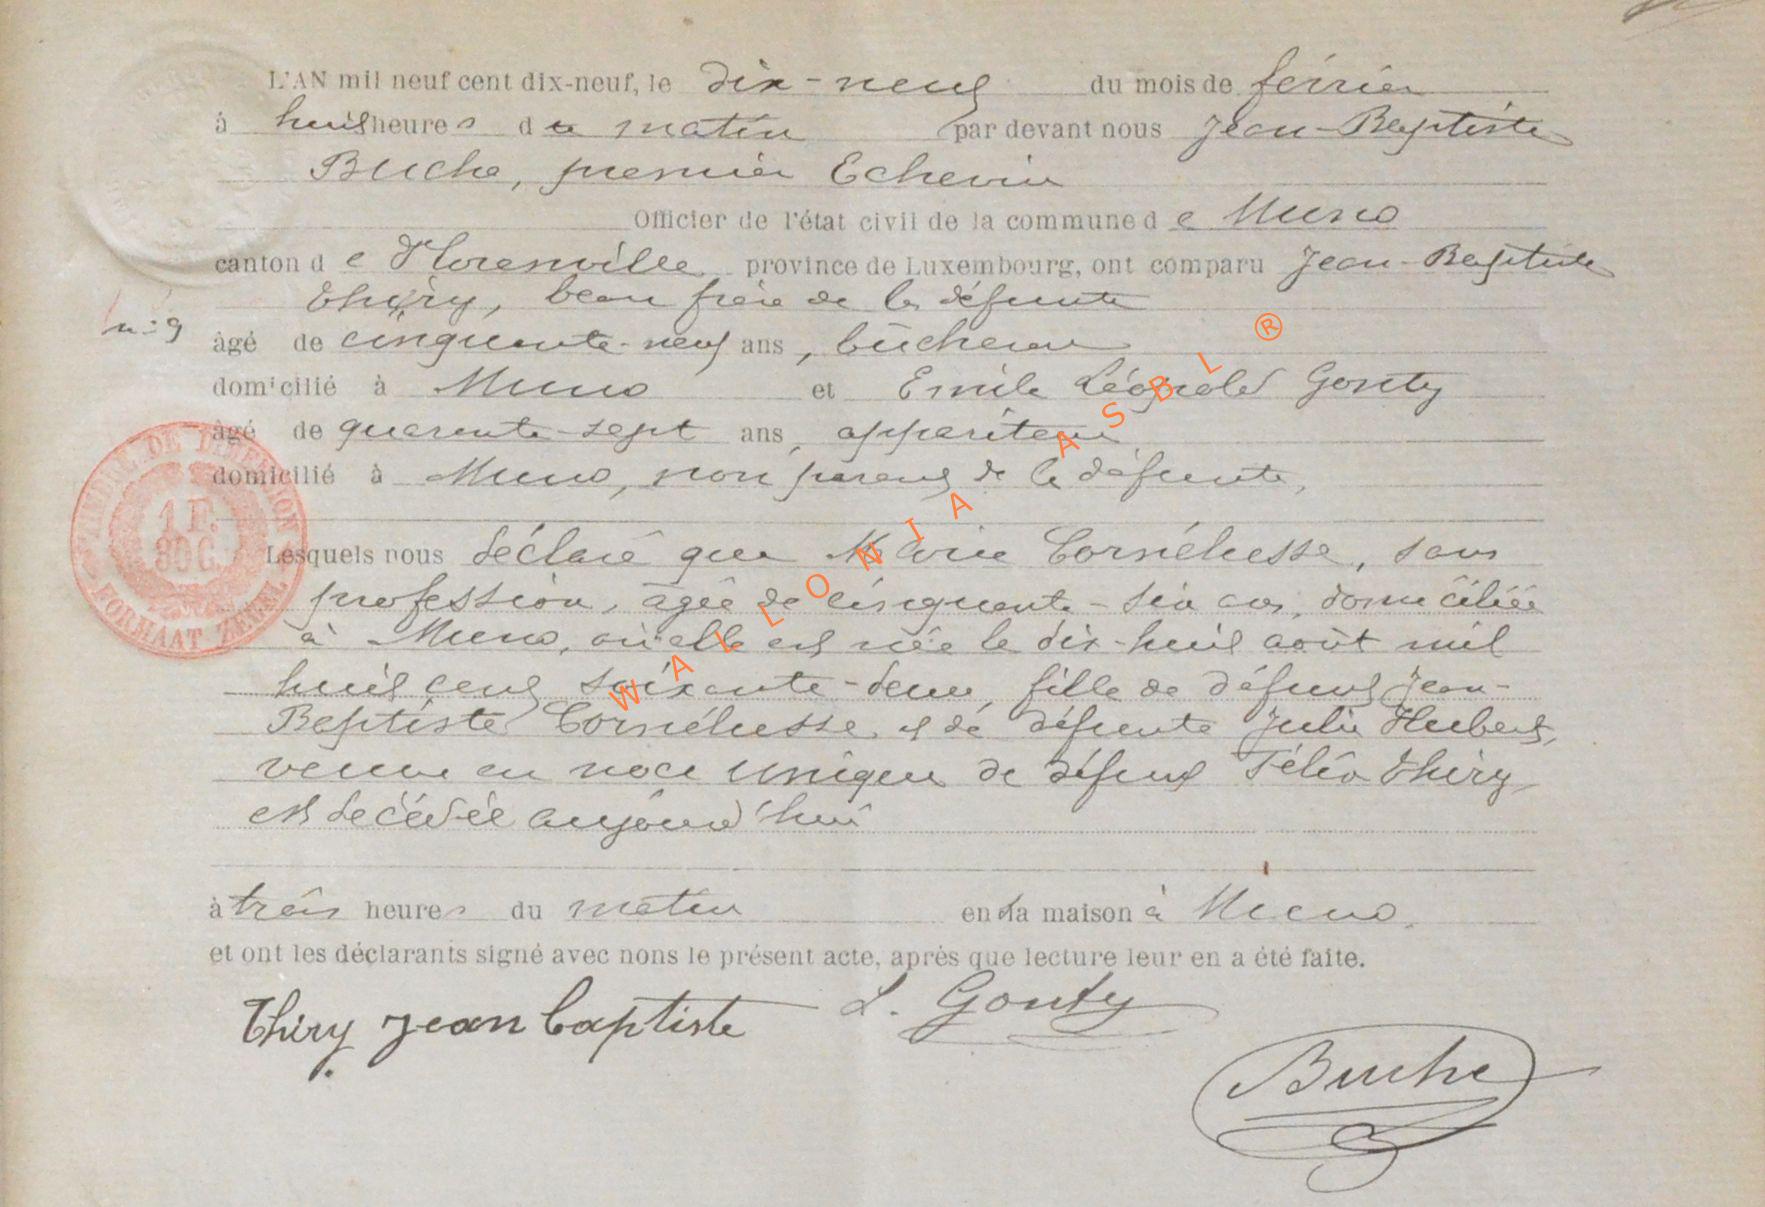 L'AN mil neuf cent dix-neuf, le dix-neuf du mois de février
à huit heures du matin par devant nous Jean-Baptiste
Buche, premier Echevin
Officier de l'état civil de la commune de Muno
canton de Florenville province de Luxembourg, ont comparu Jean-Baptiste
Thiry, beau frère de la défunte
n: 9
âgé de cinquante-neuf ans, bûcheron
domicilié à Muno et Emile Léopold Gonty
âgé de quarante-sept ans, appariteur
domicilié à Muno, non parent de la défunte,
TIMBRE DE DIMENSION
1 F.
80 C.
FORMAAT ZEGEL
Lesquels nous déclaré que Marie Cornélusse, sans
profession, âgée de cinquante-six ans, domiciliée
à Muno, où elle est née le dix-huit août mil
huit cent soixante-deux, fille de défunt Jean-
Baptiste Cornélusse et de défunte Julie Hubert,
veuve en noce unique de défunt Félix Thiry,
est décédée aujourd'hui
à trois heures du matin en sa maison à Muno.
et ont les déclarants signé avec nons le présent acte, après que lecture leur en a été faite.
Thiry Jean baptiste L. Gonty
Buche
WALLONIA ASBL ®